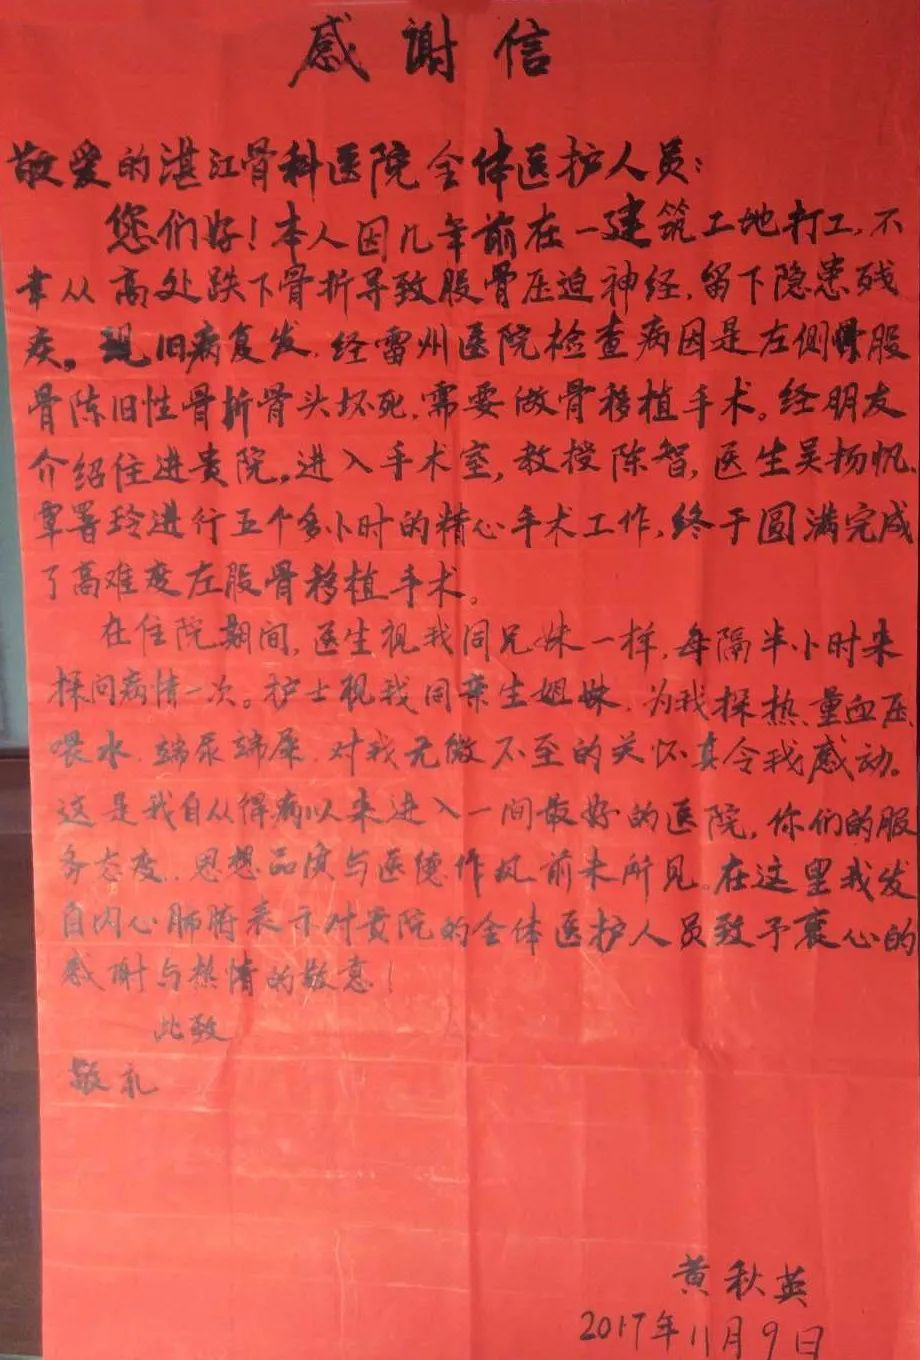 感谢信
敬爱的湛江骨科医院全体医护人员：
您们好！本人因几年前在一建筑工地打工，不
幸从高处跌下骨折导致股骨压迫神经，留下隐患残
疾。现旧病复发，经雷州医院检查病因是左侧股
骨陈旧性骨折骨头坏死，需要做骨移植手术。经朋友
介绍住进贵院。进入手术室，教授陈智，医生吴扬帆
覃署玲进行五个多小时的精心手术工作，终于圆满完成
了高难度左股骨移植手术。
在住院期间，医生视我同兄妹一样，每隔半小时来
探问病情一次。护士视我同亲生姐妹，为我探热、量血压
喂水、端尿端屎，对我无微不至的关怀真令我感动。
这是我自从得病以来进入一间最好的医院，你们的服
务态度、思想品度与医德作风前未所见。在这里我发
自内心肺腑表示对贵院的全体医护人员致予衷心的
感谢与热情的敬意！
此致
敬礼
黄秋英
2017年11月9日